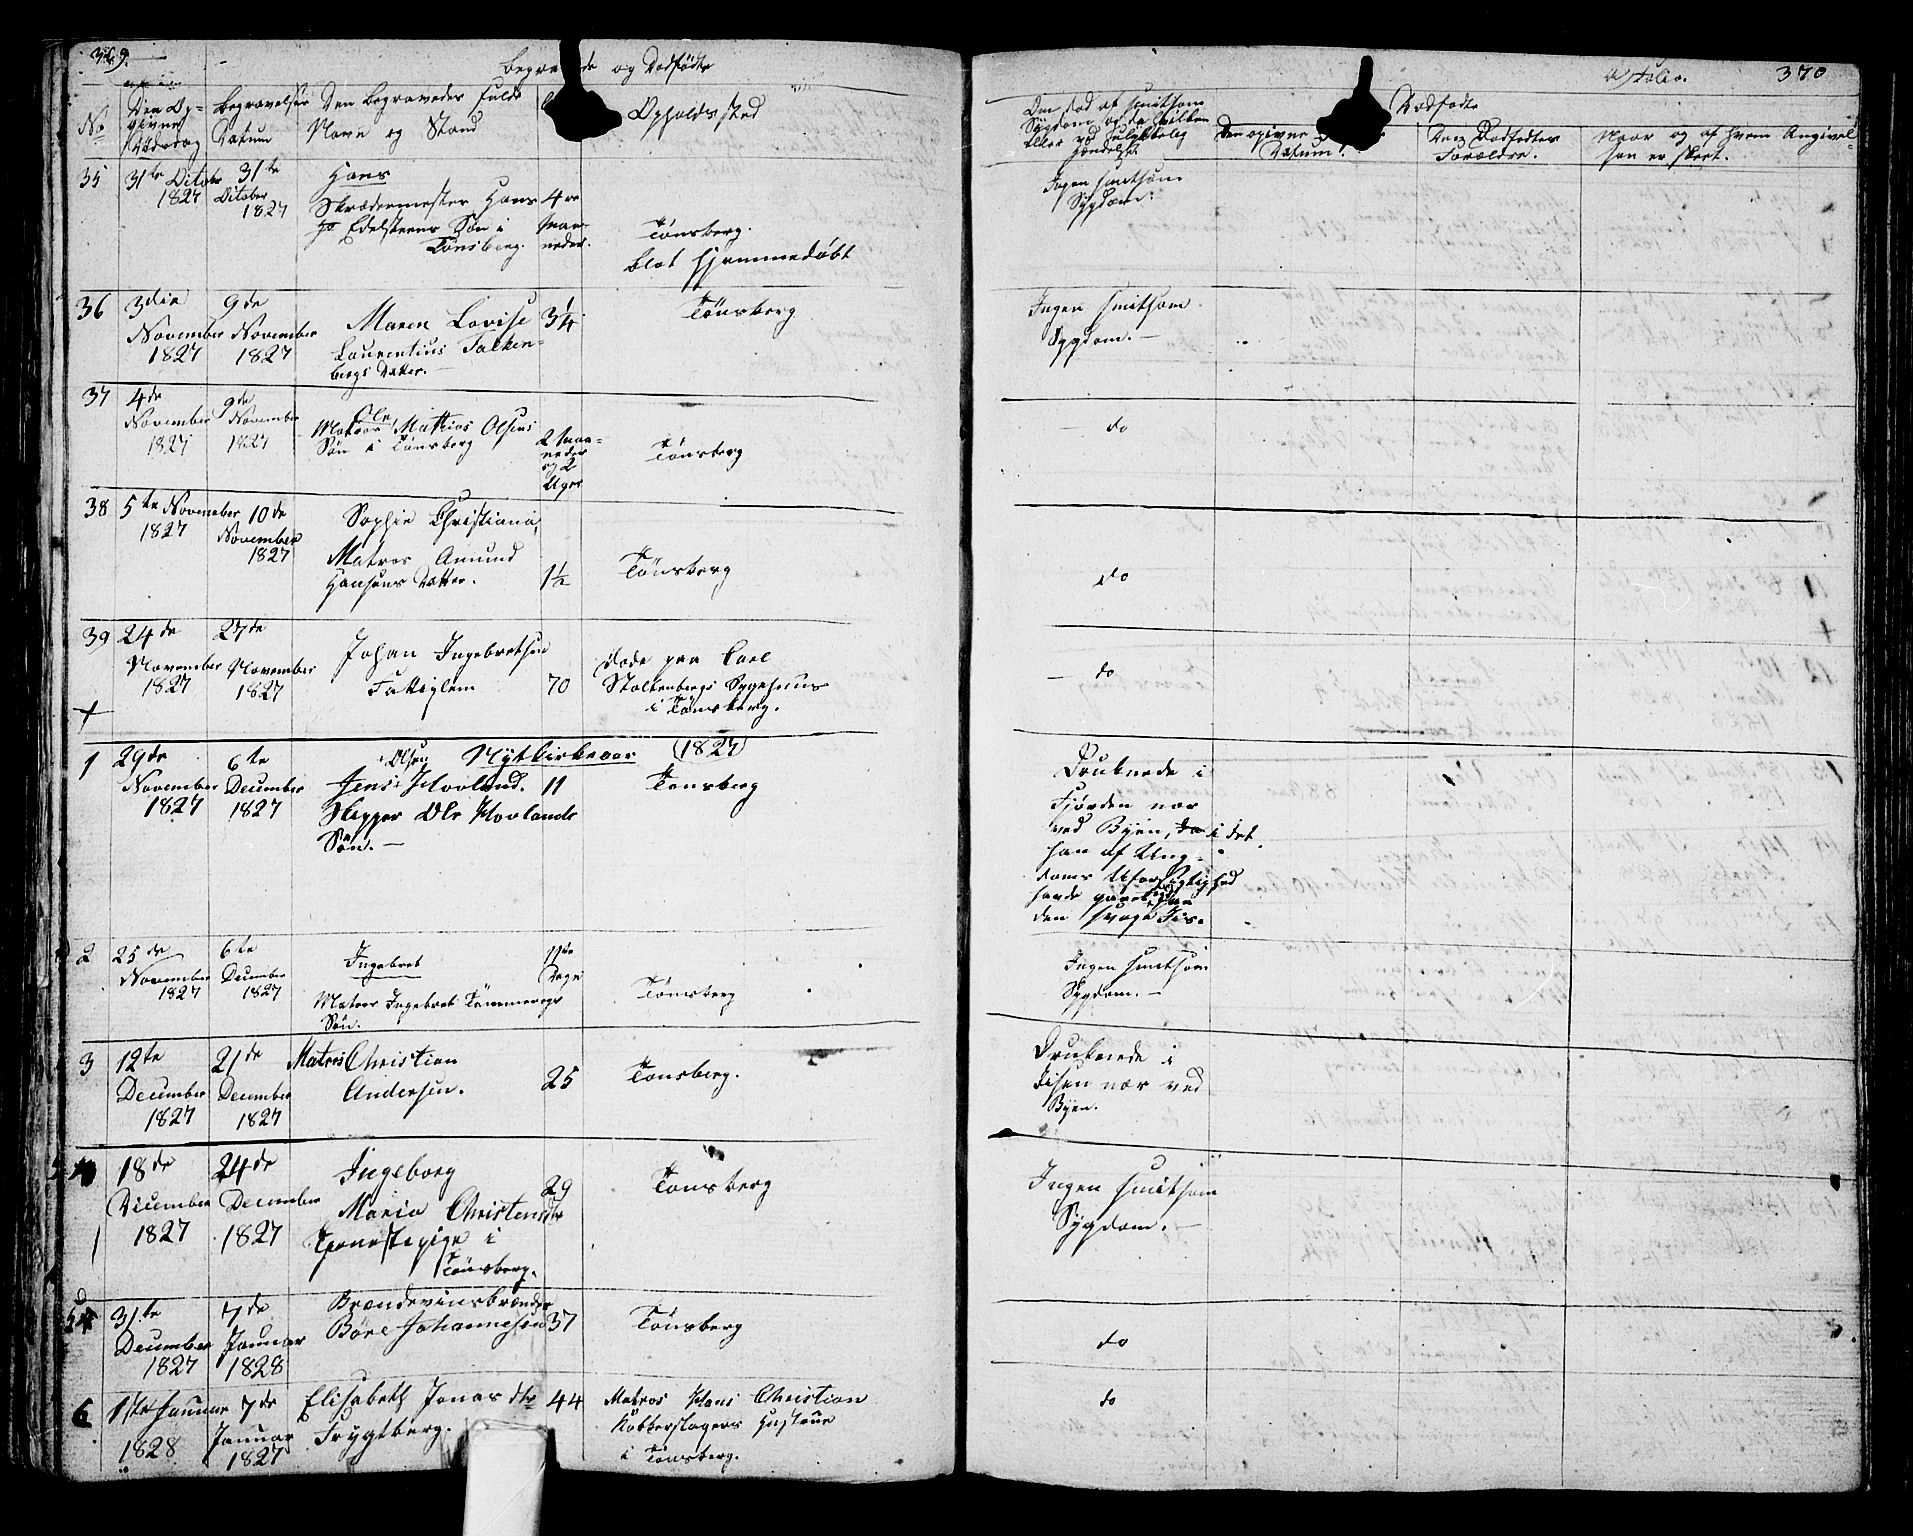 369.
Begra de og Dødfødte
No
Den Op-
givne
Dødsdag
Begravelses
Datum
Den Begravedes fulde
Navn og Stand
Opholdssted
35
31te Octobr
1827
31te
October
1827
Hans
Skrædermester Hans
Edelsteens Søn i
Tønsberg.
4re
Maa-
neder.
Tønsberg.
blot hjemmedøbt
36
3die
November
1827
9de
November
1827
Maren Lovise
Laurentius Falken-
bergs Datter.—
3¼
Tønsberg
37
4de
November
1827
9de
November
1827
Ole
Matros Mathias Olsens
Søn i Tønsberg
2 Maa-
neder
og 2
Uger
Tønsberg
38
5te November
1827
10de
November
1827
Sophie Christiana,
Matros Amund
Hansens Datter.
1½
Tønsberg
39
24de
November
1827
27de
November
1827
Johan Ingebretsen
Fattiglem
70
døde paa Carl
Stoltenbergs Sygehuus
i Tønsberg.
+
Nytkirkeaar (1827)
1
29de
November
1827
6te
December
1827
Olsen
Jens Hovland.
Skipper Ole Hovlands
Søn.—
11
Tønsberg
2
25de
November
1827
6te
December
1827
Ingebret
Matros Ingebret Tømmerøgs
Søn.
Dage
Tønsberg
3
12te
December
1827
21de
December
1827
Matros Christian
Andersen.
25
Tønsberg.
18de
December
1827
24de
December
1827
Ingeborg
Maria Christensdtr
Tjenestepige i
Tønsberg.
29
Tønsberg
31te
December
1827
7de
Januar
1828
Brændevinsbrænder
Børe Johannesen
37
Tønsberg
6
1ste Januar
1828
7de
Januar
1827
Elisabeth Jonas dtr
Frygtberg.
44
Matros Hans Christian
Kobberslagers Hustrue
i Tønsberg.
a Folio.
370
Om død af smitsom
Sygdom og da hvilken
eller ved Ulykkelig
Hændelse.
Dødfødte
Den opgivne
Datum.
Den Dødfødtes
Forældre.
Naar og af hvem Angivel-
sen er skeet.
Ingen smitsom
Sygdom.
Ingen smitsom
Sygdom.—
do
do
do
Druknede i
Fjorden nær
ved Byen, da i det
han af Ung-
doms Uforsigtighed
havde
den svage Iis.
Ingen smitsom
Sygdom.—
Druknede i
Iisen nær ved
Byen.
Ingen smitsom
Sygdom.—
do
do